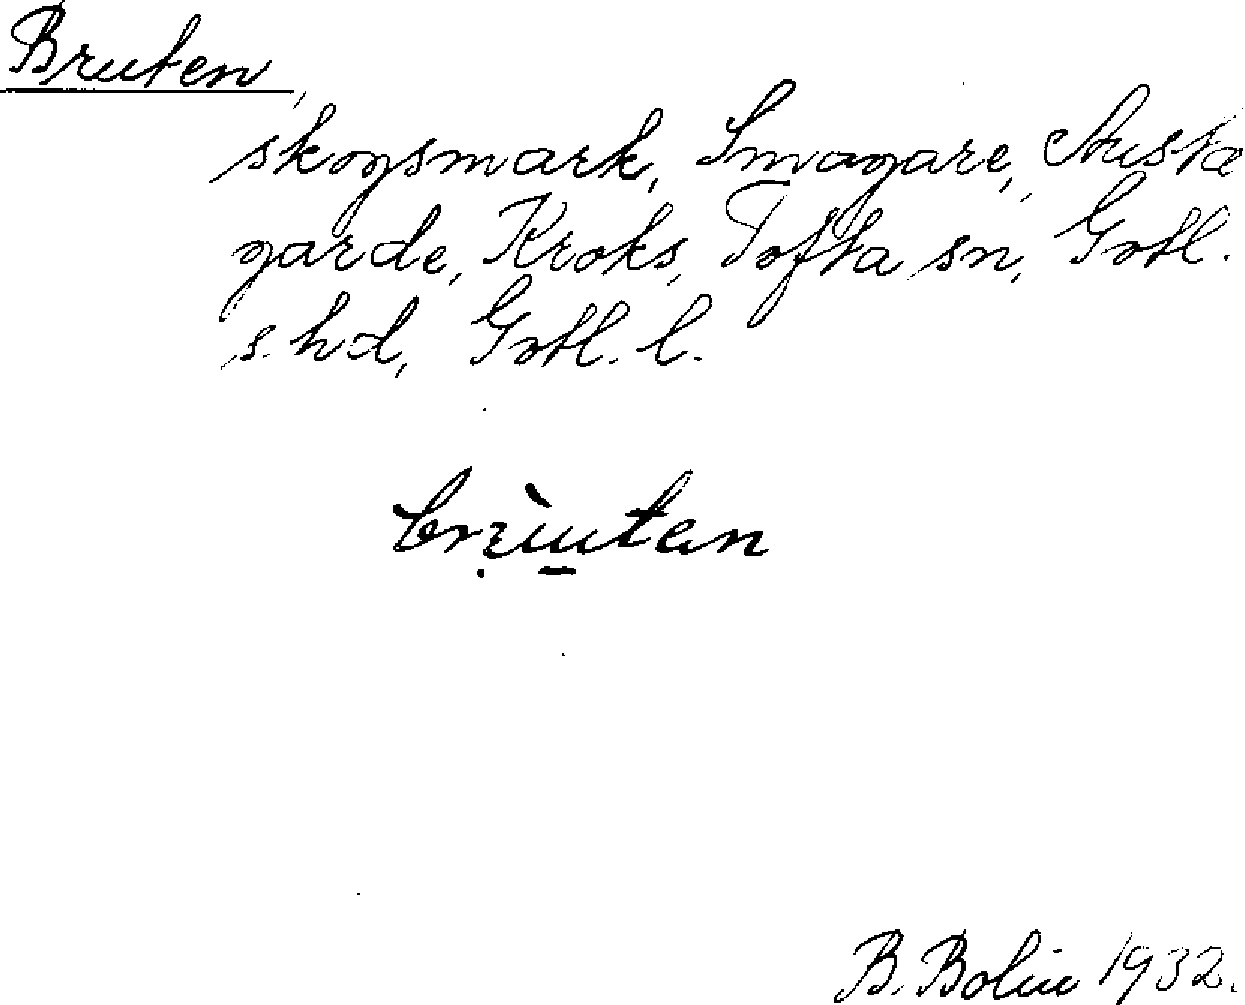 Bruten,
skogsmark, Smågårde, Auster
garde, Kroks, Tofta sn, Gotl.
s. hd, Gotl. l.
B. Bolin 1932.